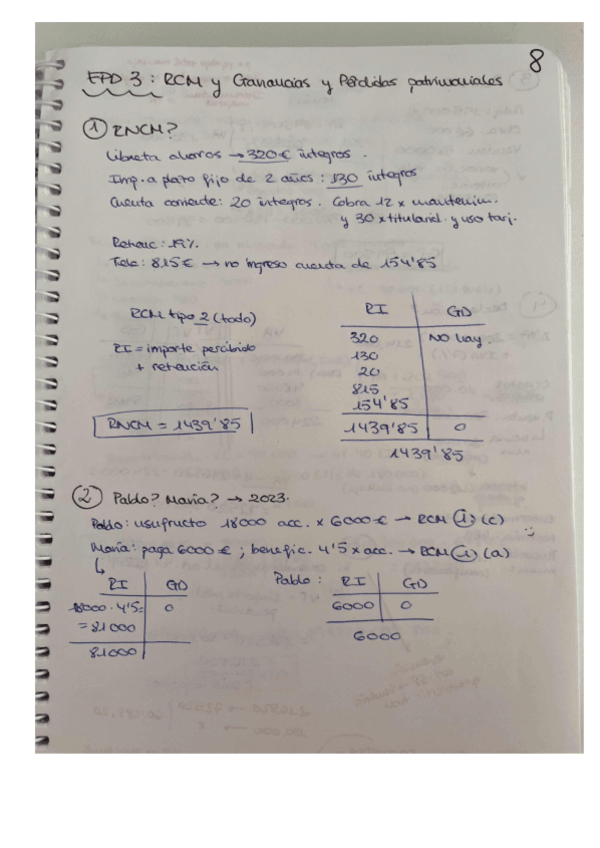 8
EPD 3 : RCM y Ganancias y Pérdidas patrimoniales
① RNCM?
Libreta ahorros → 320 € íntegros .
Imp. a plazo fijo de 2 años : 130 íntegros
Cuenta corriente: 20 íntegros. Cobra 12 x mantenim.
y 30 x titularid. y uso tarj.
Retenc : 19%.
Tele : 815 € → no ingreso cuenta de 154'85
RCM tipo 2 (todo)
RI = importe percibido
+ retención
RNCM = 1439'85
RI GD
320 NO hay
130
20
815
154'85
1439'85 0
1439'85
② Pablo? María? → 2023.
Pablo: usufructo 18000 acc. x 6000 € → RCM ① (c)
María: paga 6000 € ; benefic. 4'5 x acc. → RCM ① (a)
RI GD
18000 · 4'5 = 0
= 81000
81000
Pablo : RI GD
6000 0
6000